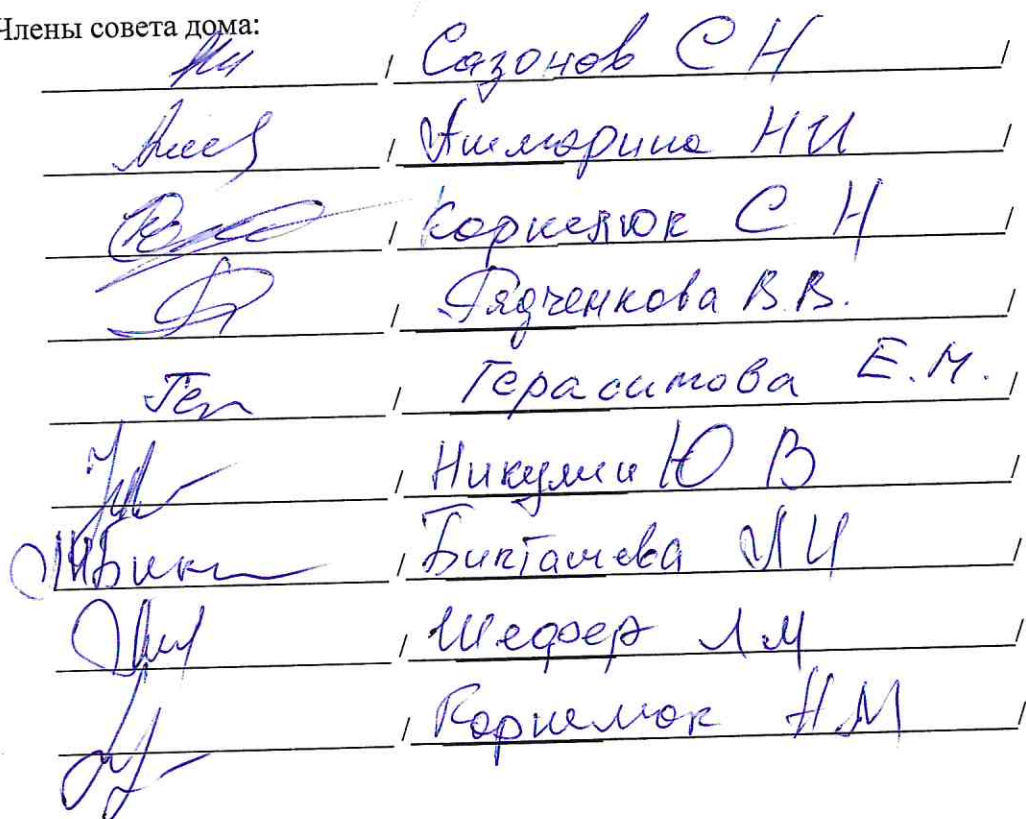 Члены совета дома:
/ Сазонов С Н /
/ Ашмарина НИ /
/ Корнелюк С Н /
/ Дядченкова В.В. /
Гер / Герасимова Е.М. /
/ Никулин Ю В /
/ Бикташева ЛИ /
/ Шефер ЛМ /
/ Корнелюк НМ /